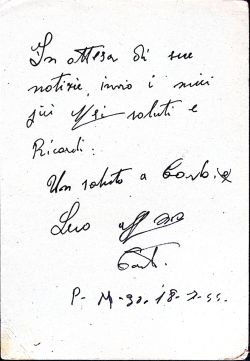 In attesa di sue
notizie, invio i miei
più saluti e
Ricordi.
Un saluto a
Suo
P. M. 30. 18-2-